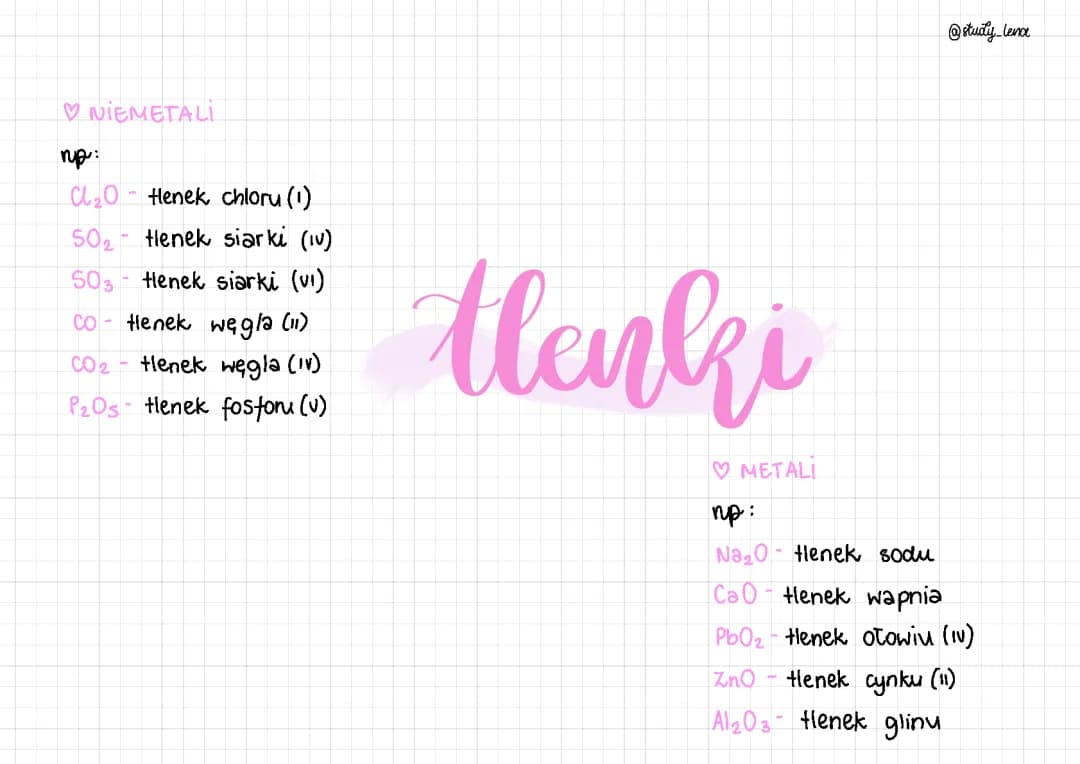 @study_lena
♡ NIEMETALI
np:
Cl₂O - tlenek chloru (I)
SO₂ - tlenek siarki (IV)
SO₃ - tlenek siarki (VI)
CO - tlenek węgla (II)
CO₂ - tlenek węgla (IV)
P₂O₅ - tlenek fosforu (V)
tlenki
♡ METALI
np:
Na₂O - tlenek sodu
CaO - tlenek wapnia
PbO₂ - tlenek ołowiu (IV)
ZnO - tlenek cynku (II)
Al₂O₃ - tlenek glinu